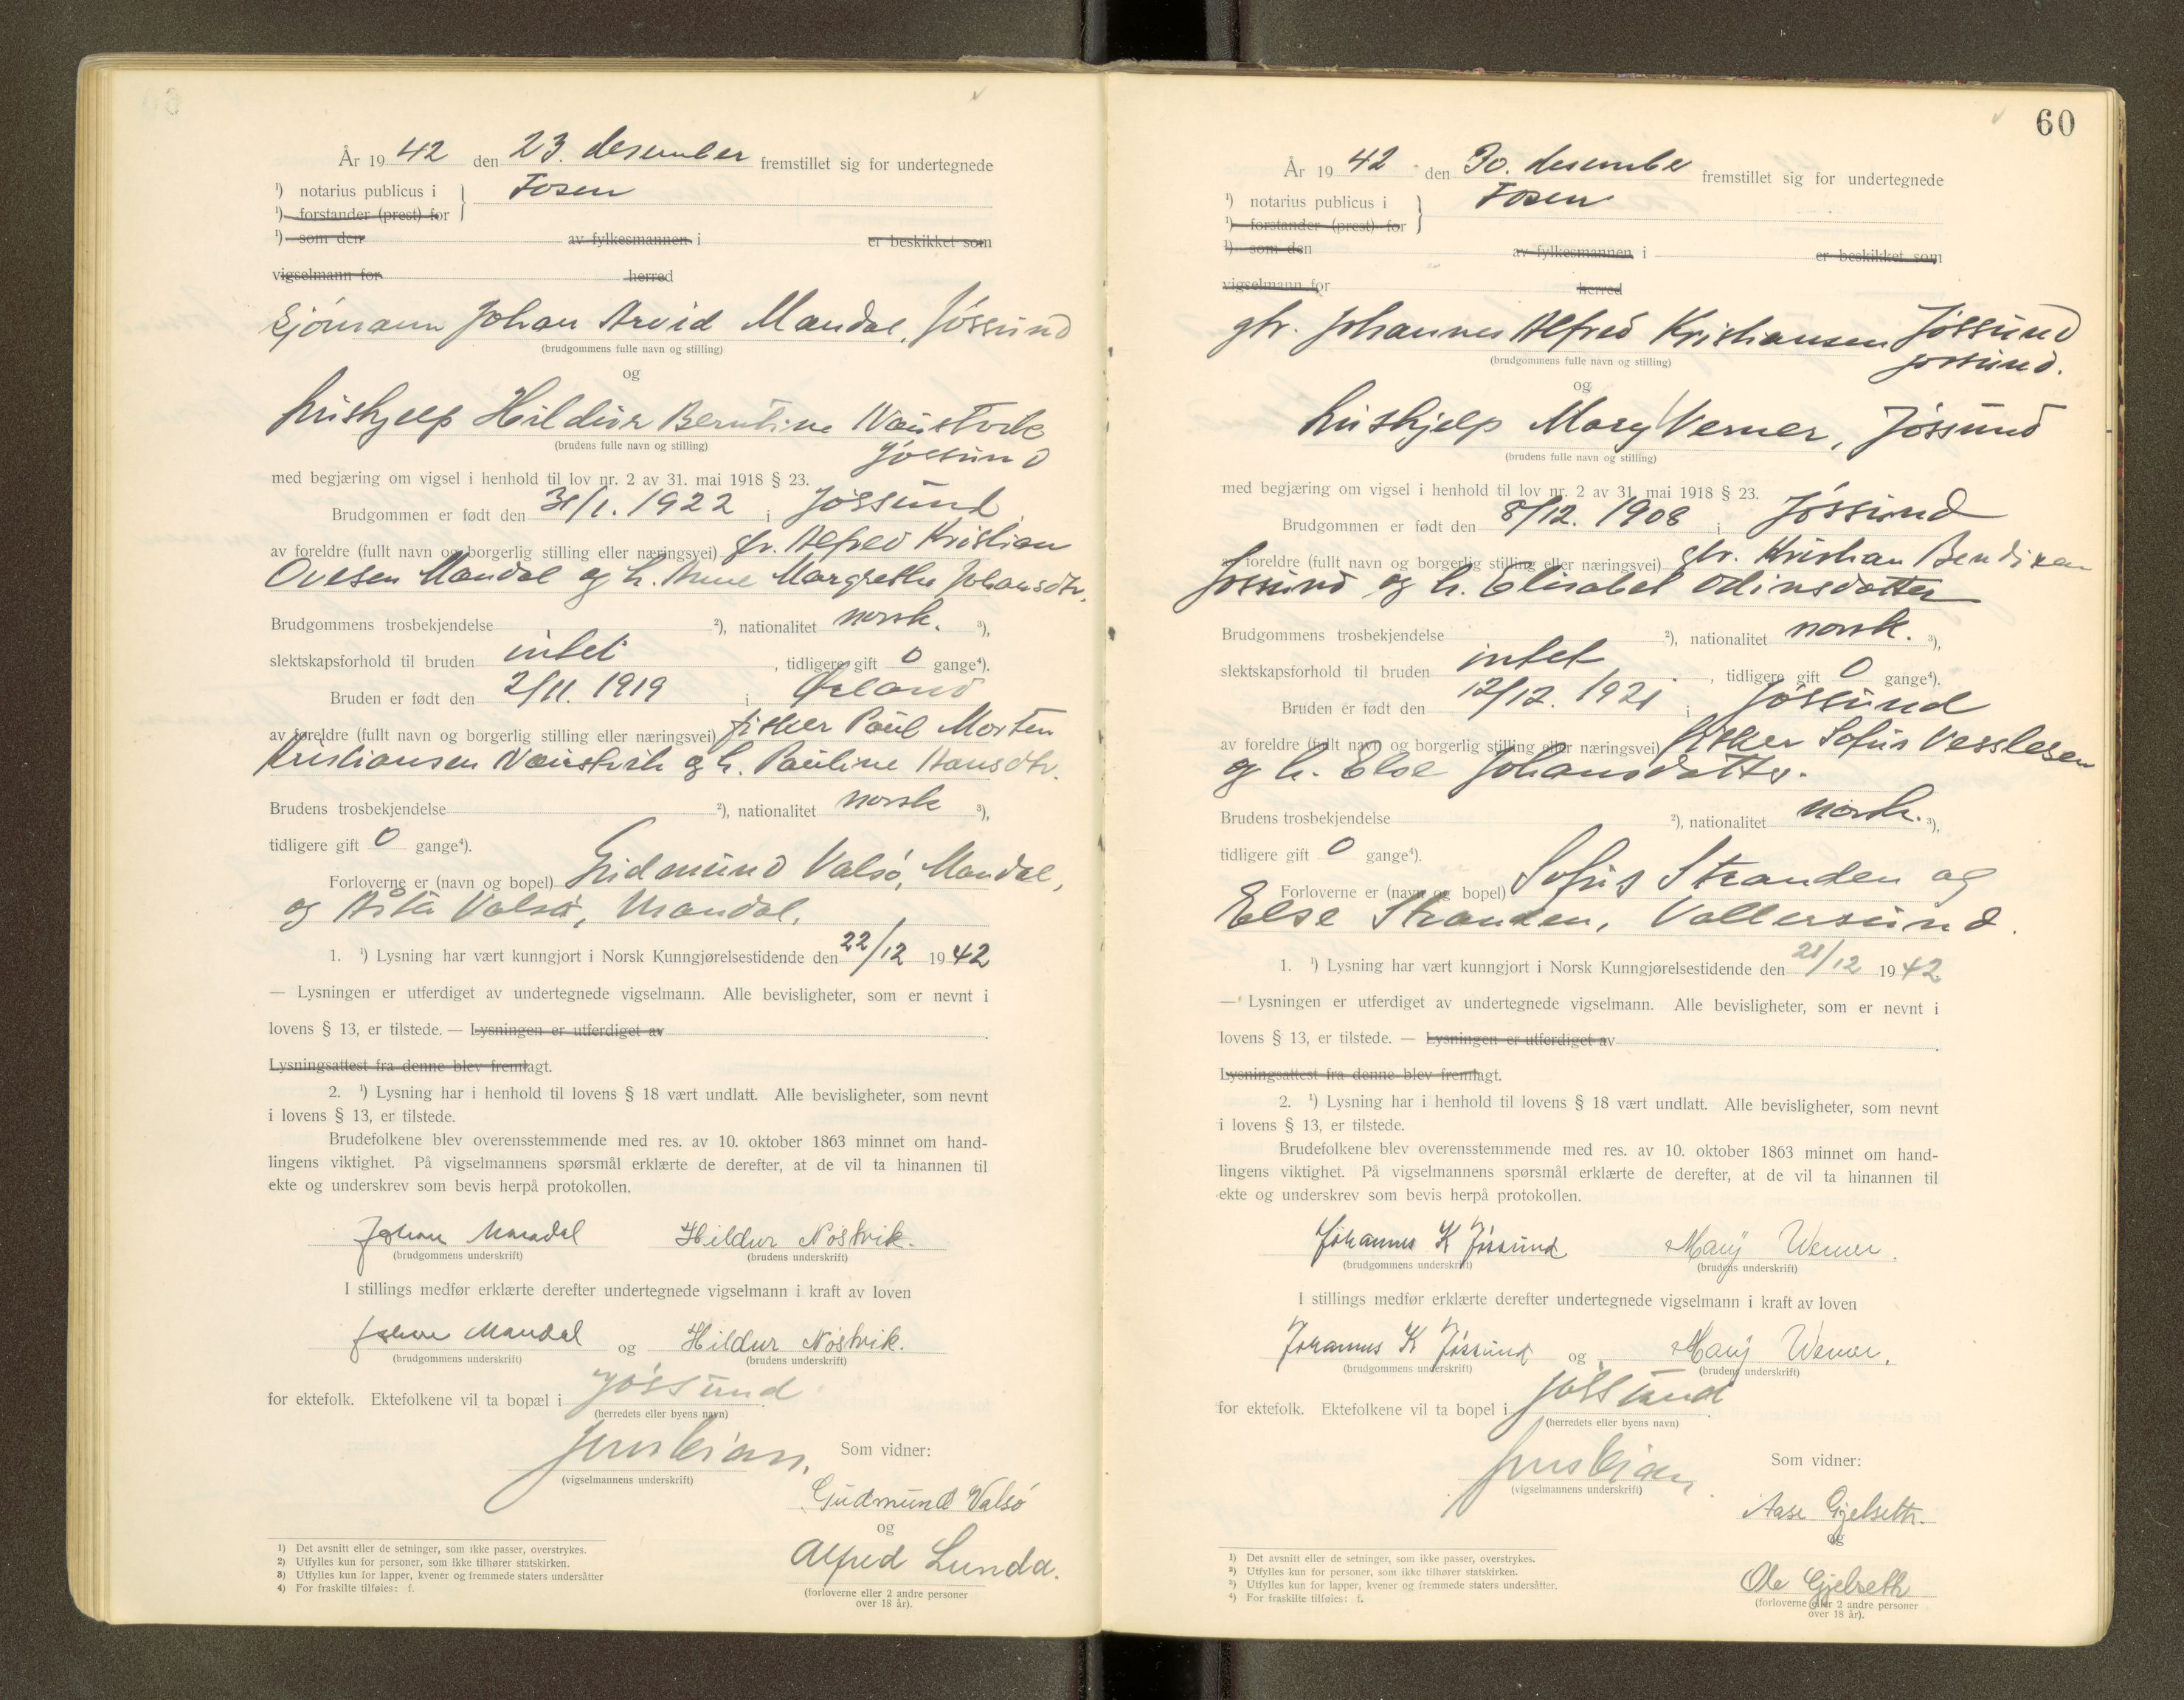 År 1942 den 23. desember fremstillet sig for undertegnede
¹) notarius publicus i } Fosen
¹) forstander (prest) for
¹) som den av fylkesmannen i er beskikket som
vigselmann for herred
Sjömann Johan Arvid Mandal, Jössund
(brudgommens fulle navn og stilling)
og
hushjelp Hildur Berntine Naustvik
(brudens fulle navn og stilling)
Jössund
med begjæring om vigsel i henhold til lov nr. 2 av 31. mai 1918 § 23.
Brudgommen er født den 31/1. 1922 i Jössund
av foreldre (fullt navn og borgerlig stilling eller næringsvei) gbr. Alfred Kristian
Ovesen Mandal og h. Anne Margrethe Johansdtr.
Brudgommens trosbekjendelse ²), nationalitet norsk. ³),
slektskapsforhold til bruden intet , tidligere gift 0 gange⁴).
Bruden er født den 2/11. 1919 i Ørland
av foreldre (fullt navn og borgerlig stilling eller næringsvei) fisker Paul Morten
Kristiansen Naustvik og h. Pauline Hansdtr.
Brudens trosbekjendelse ²), nationalitet norsk ³),
tidligere gift 0 gange⁴).
Forloverne er (navn og bopel) Gudmund Valsö, Mandal,
og Åsta Valsö, Mandal.
1. ¹) Lysning har vært kunngjort i Norsk Kunngjørelsestidende den 22/12 1942
— Lysningen er utferdiget av undertegnede vigselmann. Alle bevisligheter, som er nevnt i
lovens § 13, er tilstede. — Lysningen er utferdiget av .
Lysningsattest fra denne blev fremlagt.
2. ¹) Lysning har i henhold til lovens § 18 vært undlatt. Alle bevisligheter, som nevnt
i lovens § 13, er tilstede.
Brudefolkene blev overensstemmende med res. av 10. oktober 1863 minnet om hand-
lingens viktighet. På vigselmannens spørsmål erklærte de derefter, at de vil ta hinannen til
ekte og underskrev som bevis herpå protokollen.
Johan Mandal Hildur Nöstvik.
(brudgommens underskrift) (brudens underskrift)
I stillings medfør erklærte derefter undertegnede vigselmann i kraft av loven
Johan Mandal og Hildur Nöstvik.
(brudgommens underskrift) (brudens underskrift)
for ektefolk. Ektefolkene vil ta bopæl i Jössund
(herredets eller byens navn)
Som vidner:
(vigselmannens underskrift)
Gudmund Valsö
og
Alfred Lunda.
(forloverne eller 2 andre personer
over 18 år).
1) Det avsnitt eller de setninger, som ikke passer, overstrykes.
2) Utfylles kun for personer, som ikke tilhører statskirken.
3) Utfylles kun for lapper, kvener og fremmede staters undersåtter
4) For fraskilte tilføies: f.
60
År 1942 den 30. desember fremstillet sig for undertegnede
¹) notarius publicus i } Fosen
¹) forstander (prest) for
¹) som den av fylkesmannen i er beskikket som
vigselmann for herred
gbr. Johannes Alfred Kristiansen Jössund
Jössund.
(brudgommens fulle navn og stilling)
og
hushjelp Mary Verner, Jössund
(brudens fulle navn og stilling)
med begjæring om vigsel i henhold til lov nr. 2 av 31. mai 1918 § 23.
Brudgommen er født den 8/12. 1908 i Jössund
av foreldre (fullt navn og borgerlig stilling eller næringsvei) gbr. Kristian Bendixen
Jössund og h. Elisabet Odinsdatter
Brudgommens trosbekjendelse ²), nationalitet norsk. ³),
slektskapsforhold til bruden intet , tidligere gift 0 gange⁴).
Bruden er født den 12/12. 1921 i Jössund
av foreldre (fullt navn og borgerlig stilling eller næringsvei) fisker Sofus Vesslesen
og h. Else Johansdatter.
Brudens trosbekjendelse ²), nationalitet norsk. ³),
tidligere gift 0 gange⁴).
Forloverne er (navn og bopel) Sofus Stranden og
Else Stranden, Vallersund.
1. ¹) Lysning har vært kunngjort i Norsk Kunngjørelsestidende den 21/12 1942
— Lysningen er utferdiget av undertegnede vigselmann. Alle bevisligheter, som er nevnt i
lovens § 13, er tilstede. — Lysningen er utferdiget av .
Lysningsattest fra denne blev fremlagt.
2. ¹) Lysning har i henhold til lovens § 18 vært undlatt. Alle bevisligheter, som nevnt
i lovens § 13, er tilstede.
Brudefolkene blev overensstemmende med res. av 10. oktober 1863 minnet om hand-
lingens viktighet. På vigselmannens spørsmål erklærte de derefter, at de vil ta hinannen til
ekte og underskrev som bevis herpå protokollen.
Johannes K Jössund Mary Werner.
(brudgommens underskrift) (brudens underskrift)
I stillings medfør erklærte derefter undertegnede vigselmann i kraft av loven
Johannes K Jössund og Mary Werner.
(brudgommens underskrift) (brudens underskrift)
for ektefolk. Ektefolkene vil ta bopel i Jössund
(herredets eller byens navn)
Som vidner:
(vigselmannens underskrift)
Aase Gjelseth.
og
Ole Gjelseth
(forloverne eller 2 andre personer
over 18 år).
¹) Det avsnitt eller de setninger, som ikke passer, overstrykes.
²) Utfylles kun for personer, som ikke tilhører statskirken.
³) Utfylles kun for lapper, kvener og fremmede staters undersåtter.
⁴) For fraskilte tilføies: f.